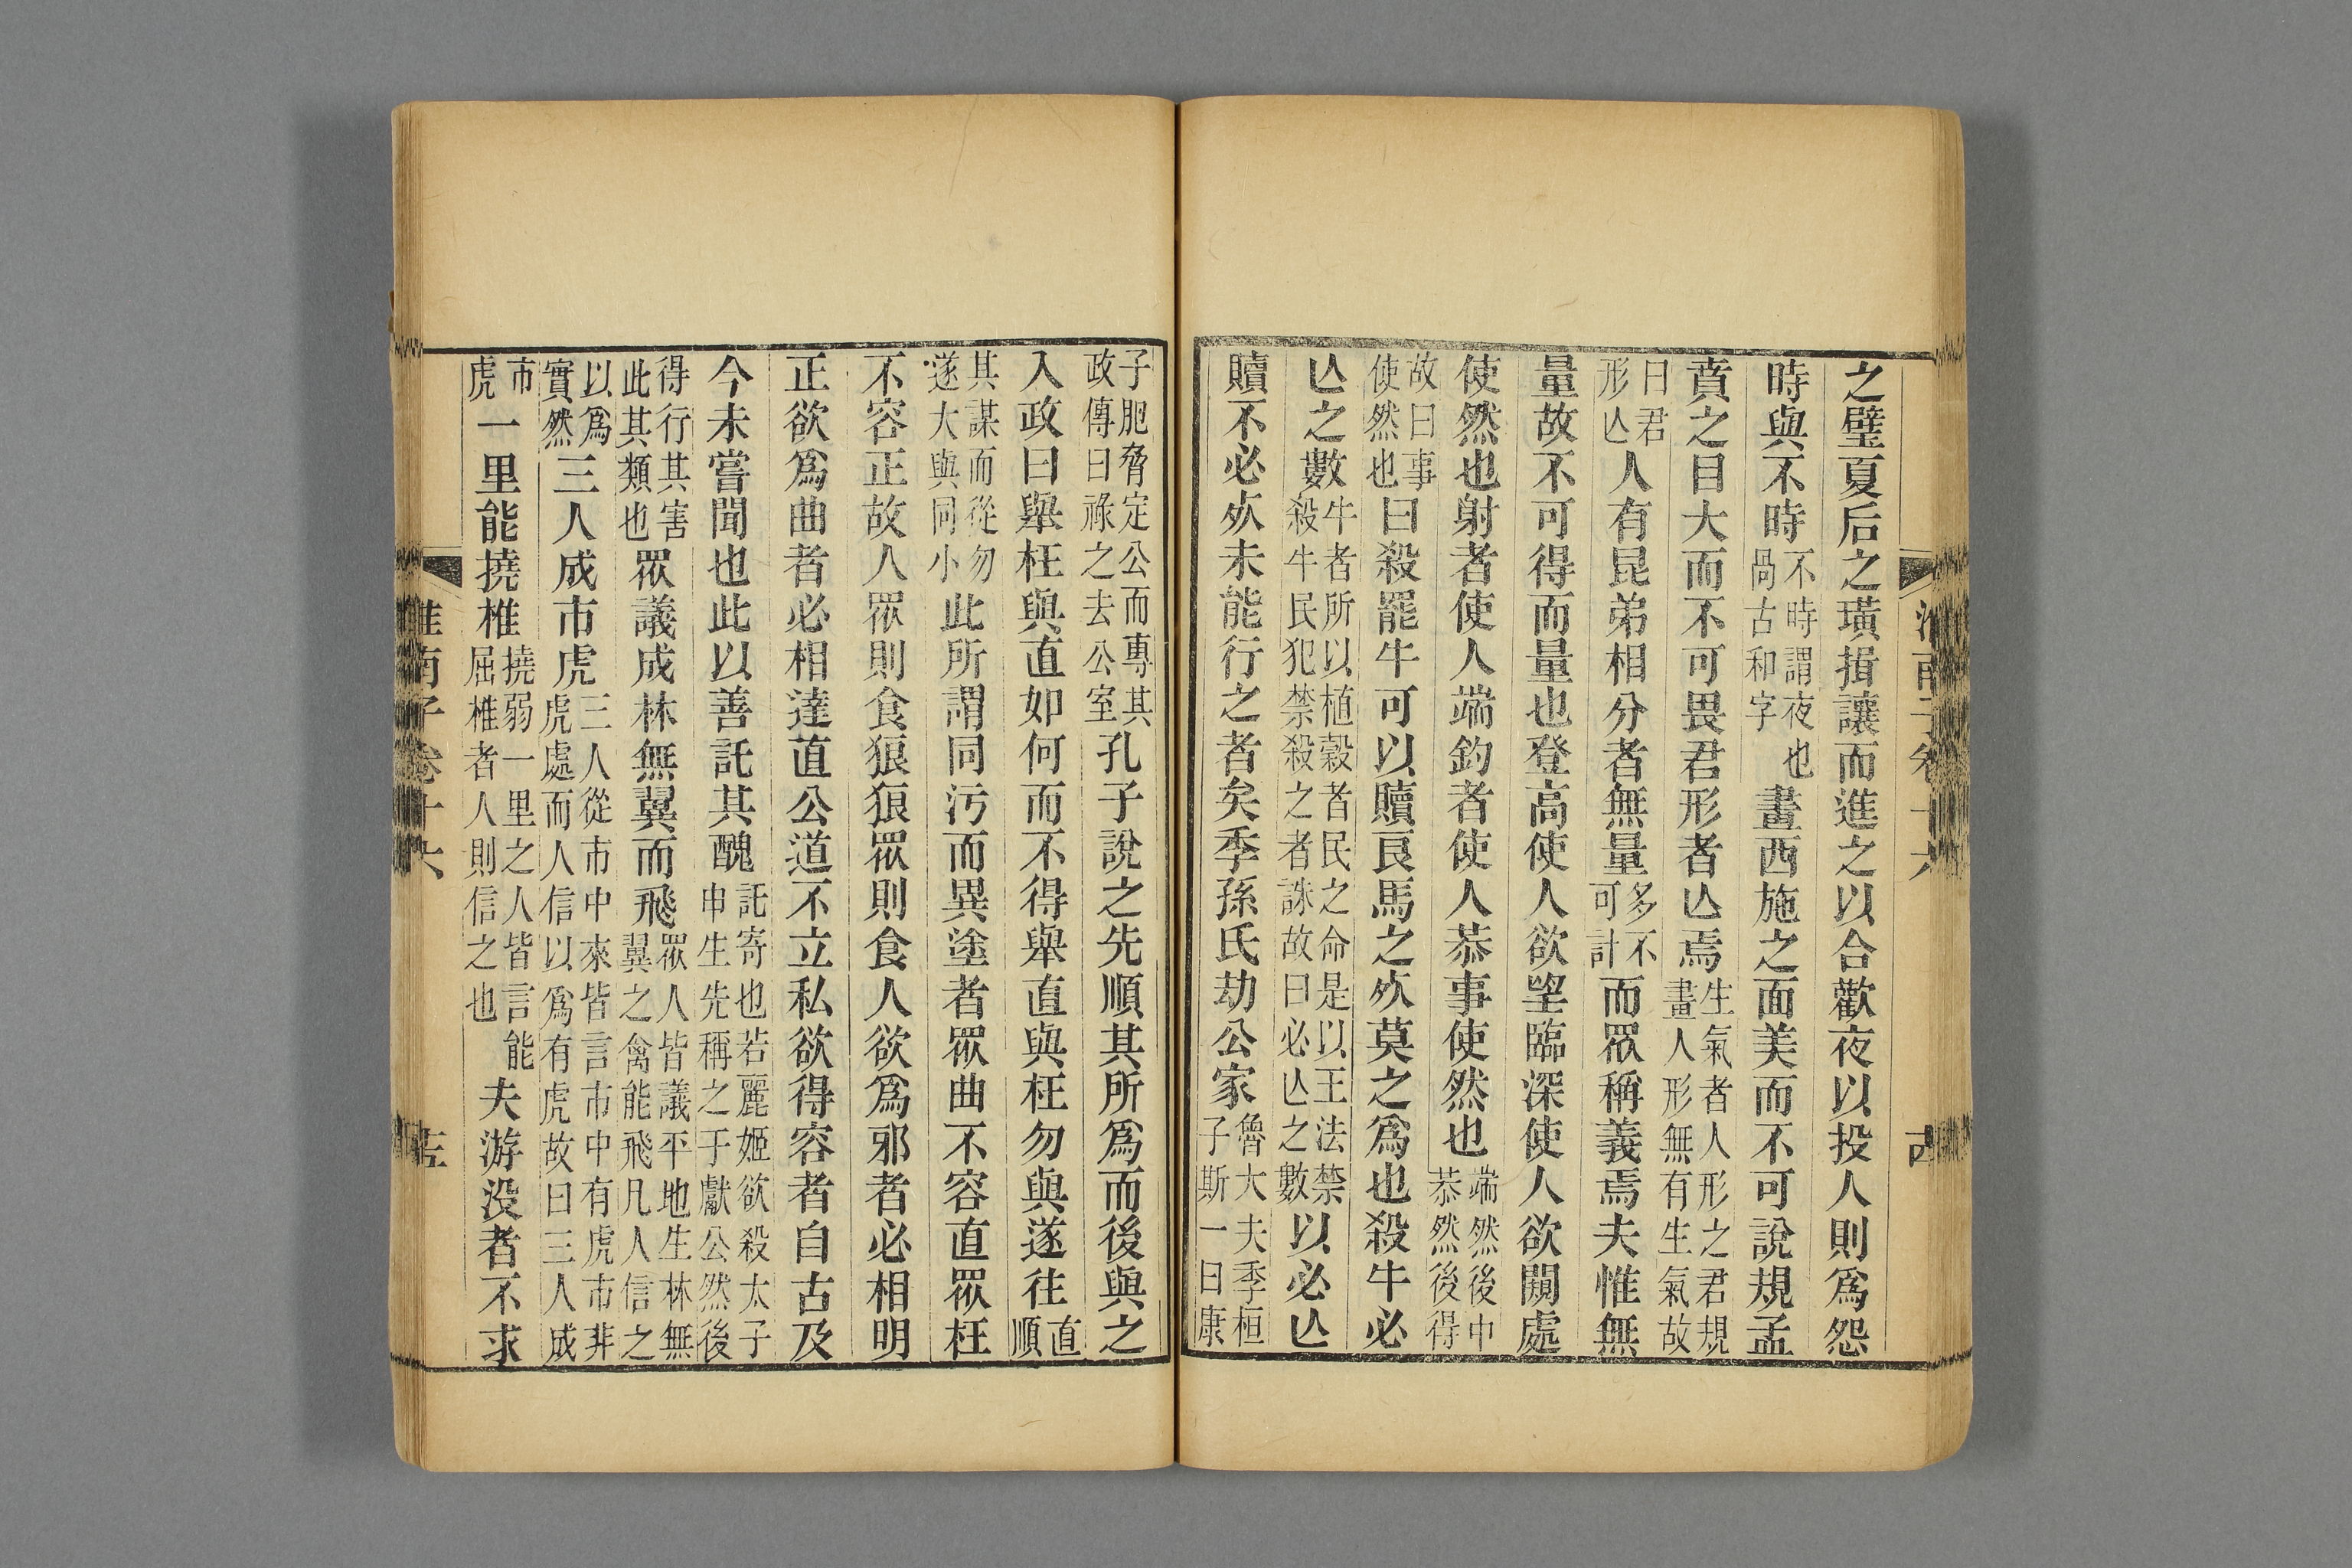 之璧夏后之璜揖讓而進之以合歡夜以投人則爲怨
時與不時不時謂夜也咼古和字畫西施之面美而不可說規孟
賁之目大而不可畏君形者亾焉生氣者人形之君規畫人形無有生氣故
曰君形亾人有昆弟相分者無量多不可計而眾稱義焉夫惟無
量故不可得而量也登高使人欲望臨深使人欲闚處
使然也射者使人端釣者使人恭事使然也端然後中恭然後得
故曰事使然也曰殺罷牛可以贖良馬之㱙莫之爲也殺牛必
亾之數牛者所以植穀者民之命是以王法禁殺牛民犯禁殺之者誅故曰必亾之數以必亾
贖不必㱙未能行之者矣季孫氏劫公家魯大夫季桓子斯一曰康
子胣脅定公而專其政傳曰祿之去公室孔子說之先順其所爲而後與之
入政曰舉枉與直如何而不得舉直與枉勿與遂往直順
其謀而從勿遂大與同小此所謂同污而異塗者眾曲不容直眾枉
不容正故人眾則食狼狼眾則食人欲爲邪者必相明
正欲爲曲者必相達直公道不立私欲得容者自古及
今未嘗聞也此以善託其醜託寄也若麗姬欲殺太子申生先稱之于獻公然後
得行其害此其類也眾議成林無翼而飛眾人皆議平地生林無翼之禽能飛凡人信之
以爲實然三人成市虎三人從市中來皆言市中有虎市非虎處而人信以爲有虎故曰三人成
市虎一里能撓椎撓弱一里之人皆言能屈椎者人則信之也夫游没者不求
淮南子卷十六